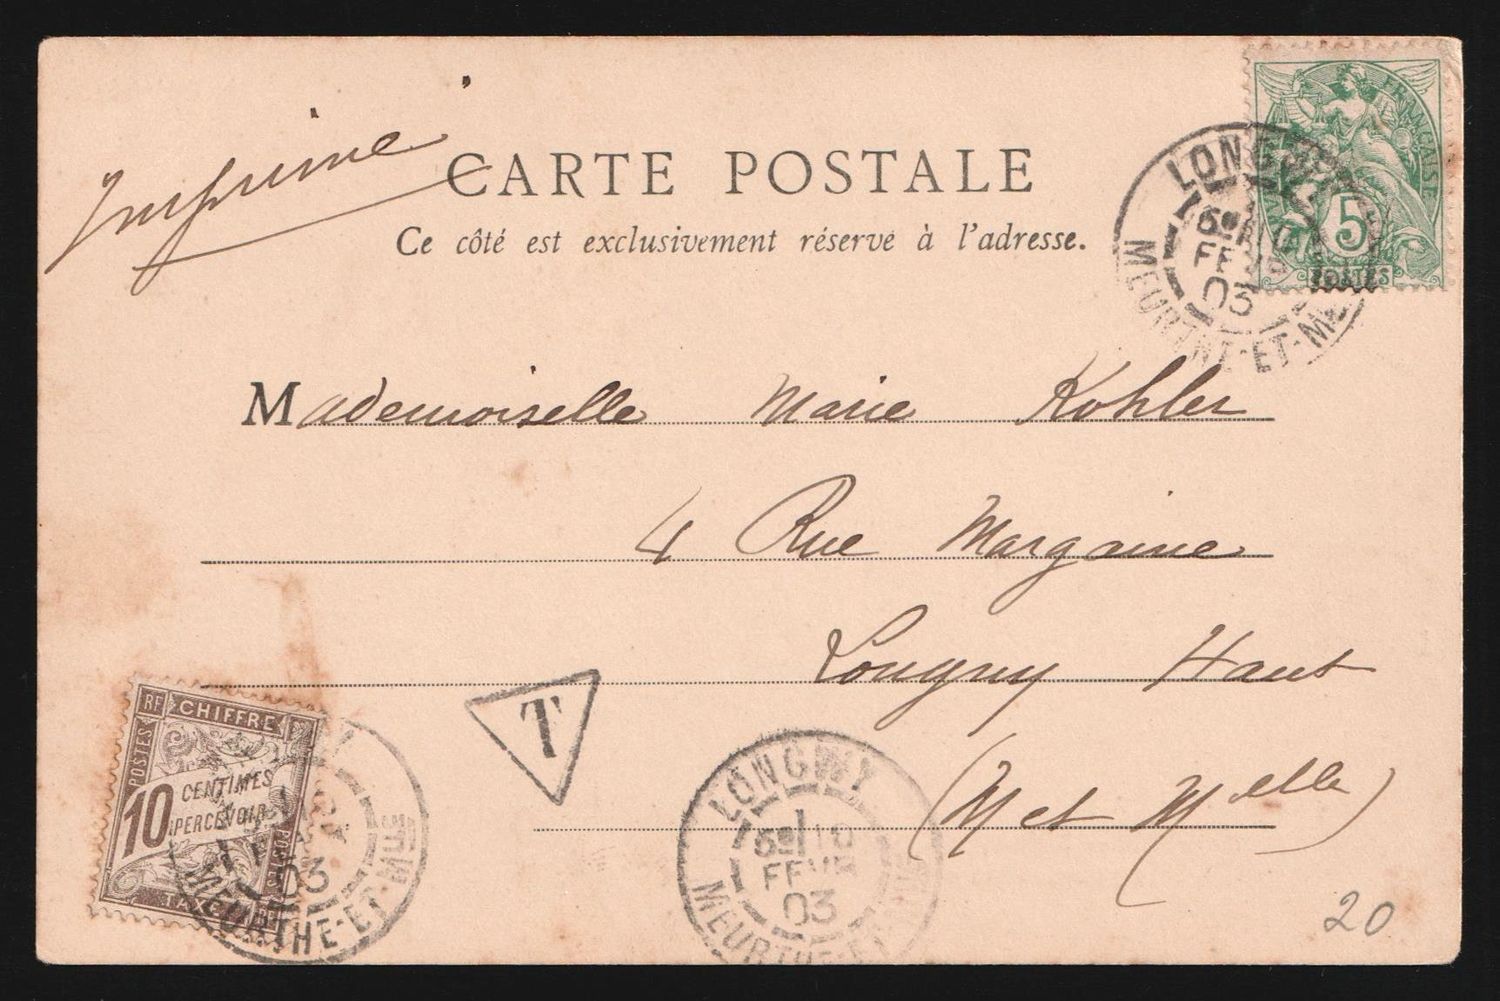 Imprimé
CARTE POSTALE
Ce côté est exclusivement réservé à l'adresse.
FRANÇAISE
5
POSTES
LONGWY
5E 10
FEVR
03
MEURTHE-ET-M
Mademoiselle Marie Kohler
4 Rue Margaine
Longwy Haut
(M et Melle)
RF CHIFFRE
POSTES
10 CENTIMES
A PERCEVOIR
POSTES
TAXE RF
FEVR
03
MEURTHE-ET-MLLE
T
LONGWY
5E 10
FEVR
03
MEURTHE-ET-M
20